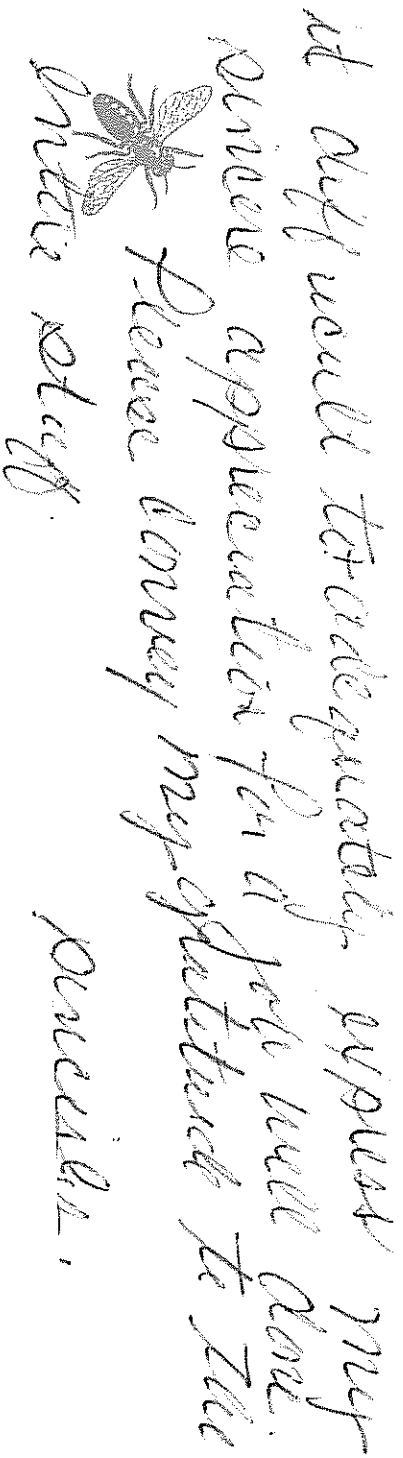 it difficult to adequately express my
sincere appreciation for a job well done.
Please convey my gratitude to the
entire staff.